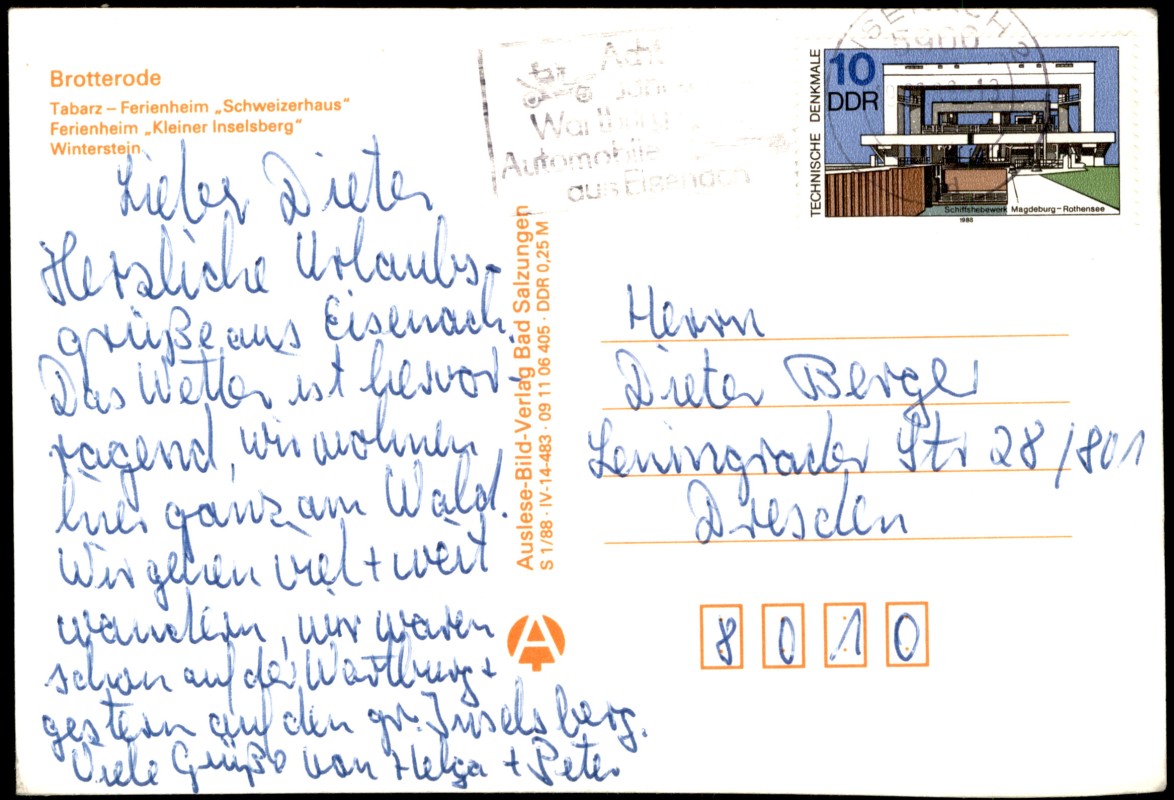 Brotterode
Tabarz – Ferienheim „Schweizerhaus“
Ferienheim „Kleiner Inselsberg“
Winterstein
Lieber Dieter
Herzliche Urlaubs-
grüße aus Eisenach.
Das Wetter ist hervor-
ragend, wir wohnen
hier ganz am Wald.
Wir gehen viel + weit
wandern, wir waren
schon auf der Wartburg +
gestern auf den gr. Inselsberg.
Viele Grüße von Helga + Peter
Auslese-Bild-Verlag Bad Salzungen
S 1/88 · IV-14-483 · 09 11 06 405 · DDR 0,25 M
A
Wartburg
Automobile
aus Eisenach
EISENACH
5900
TECHNISCHE DENKMALE
10
DDR
Schiffshebewerk Magdeburg – Rothensee
1988
Herrn
Dieter Berger
Leningrader Str 28/801
Dresden
8010